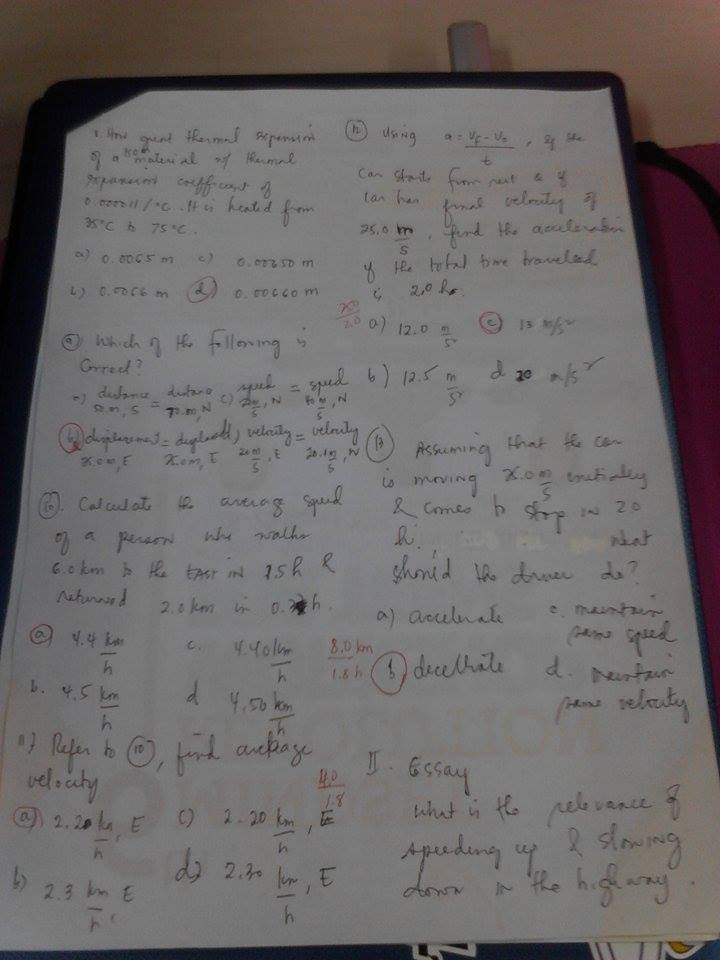 8. How great thermal expansion
of a material w/ thermal
expansion coefficient of
0.000011/°C. It is heated from
35°C to 75°C.
a) 0.0065 m c) 0.00650 m
b) 0.0066 m d) 0.00660 m
9) Which of the following is
correct?
a) distance = distance c) speed = speed
50 m, S N m/s, N m/s, N
b) displacement = d) velocity = velocity
25.0 m, E 25.0 m, E 20 m/s, E 20.1 m/s, N
10. Calculate the average speed
of a person who walks
6.0 km to the EAST IN 1.5 h &
returned 2.0 km in h.
a) 4.4 km/h c. 4.40 km/h
8.0 km/1.8 h
b. 4.5 km/h d 4.50 km/h
11) Refer to 10, find average
velocity
4.0/1.8
a) 2.20 km/h, E c) 2.20 km/h, E
b) 2.3 km/h, E d) 2.30 km/h, E
12 Using a = VF - V0/t, if the
car starts from rest & if
car has final velocity of
25.0 m/s, find the acceleration
if the total time travelled
is 2.0 h.
2.0
a) 12.0 m/s c) 13 m/s²
b) 12.5 m/s² d 20 m/s²
13 Assuming that the car
is moving m/s initially
& comes to stop in 20
h. what
should the driver do?
a) accelerate c. maintain
same speed
b decelrate d. maintain
same velocity
II. Essay
What is the relevance of
speeding up & slowing
down in the highway.